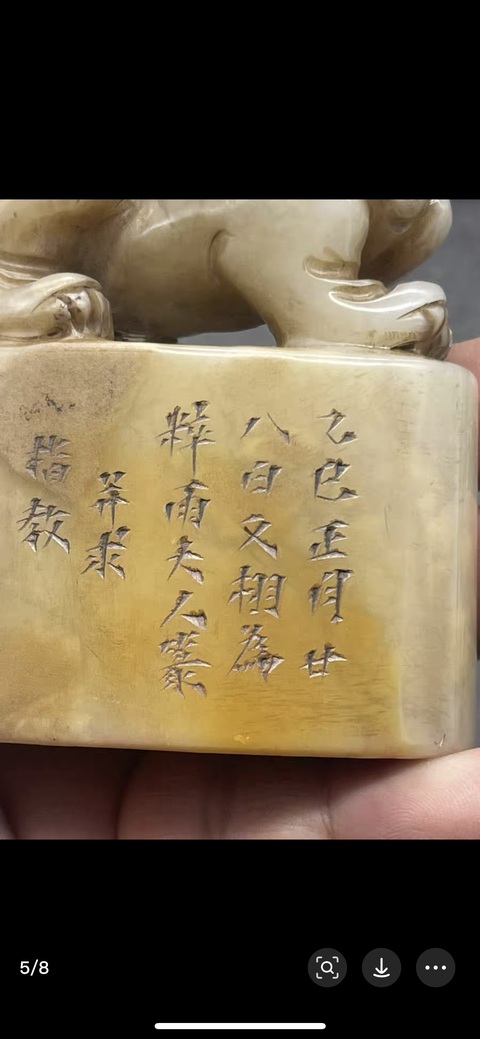 乙巳正月廿
八日文栩為
粹雨夫人篆
并求
指教
5/8